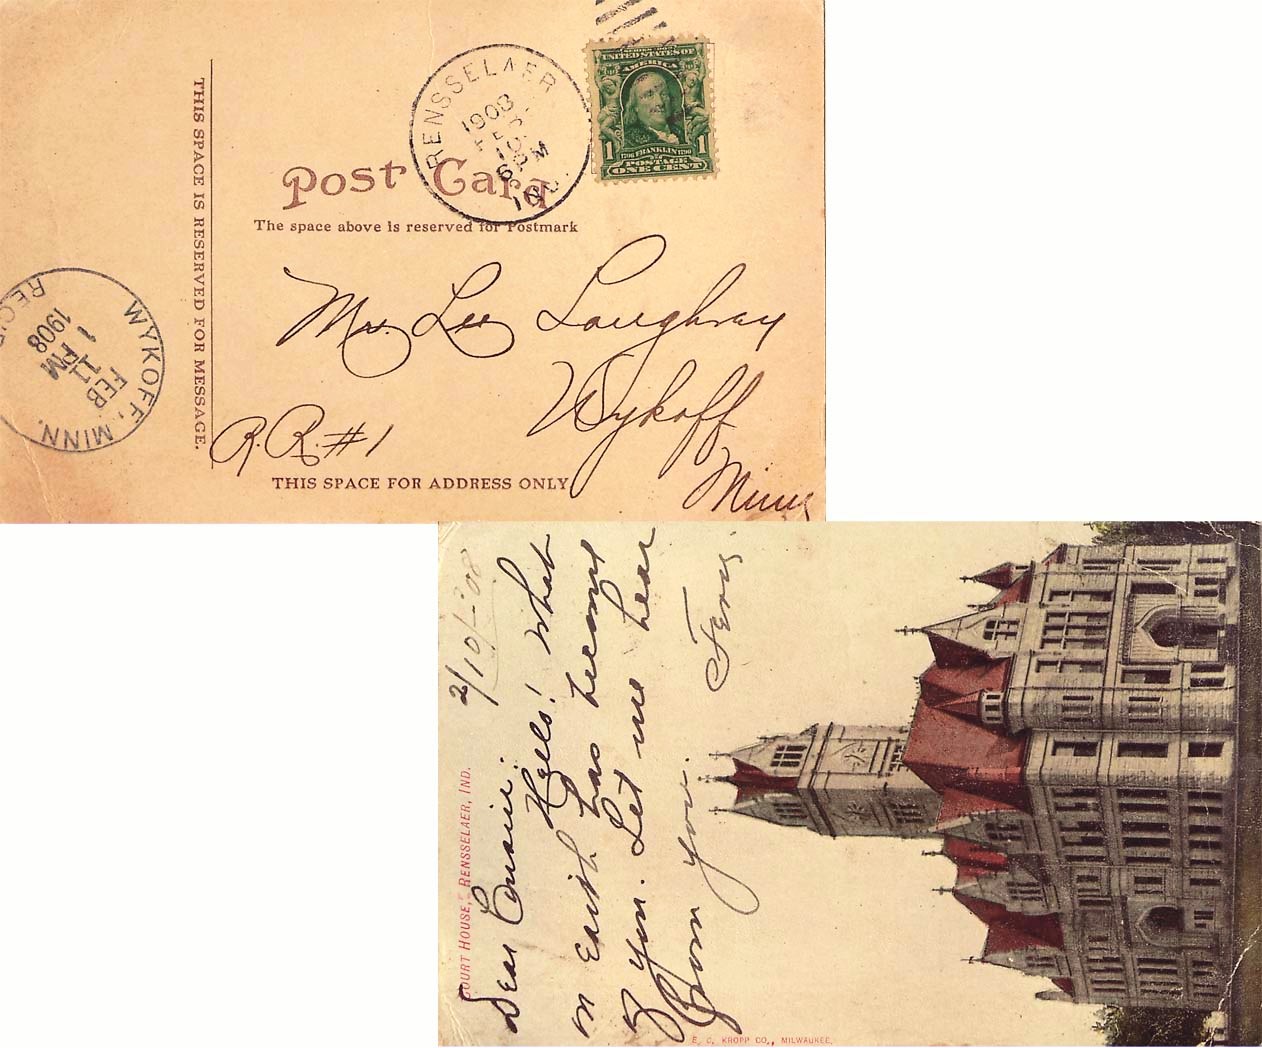 THIS SPACE IS RESERVED FOR MESSAGE.
RENSSELAER
1908
FEB
10
6 PM
IND.
SERIES 1902
UNITED STATES OF
AMERICA
1 1706 FRANKLIN 1790 1
POSTAGE
ONE CENT
Post Card
The space above is reserved for Postmark
WYKOFF, MINN.
FEB
11
1 PM
1908
REC'D
Mrs. Lee Laughray
Wykoff
R.R. #1
Minn
THIS SPACE FOR ADDRESS ONLY
COURT HOUSE, RENSSELAER, IND.
2/10/-'08
Dear Cousin:
Hello! What
on earth has become
of you. Let me hear
from you.
E. C. KROPP CO., MILWAUKEE.